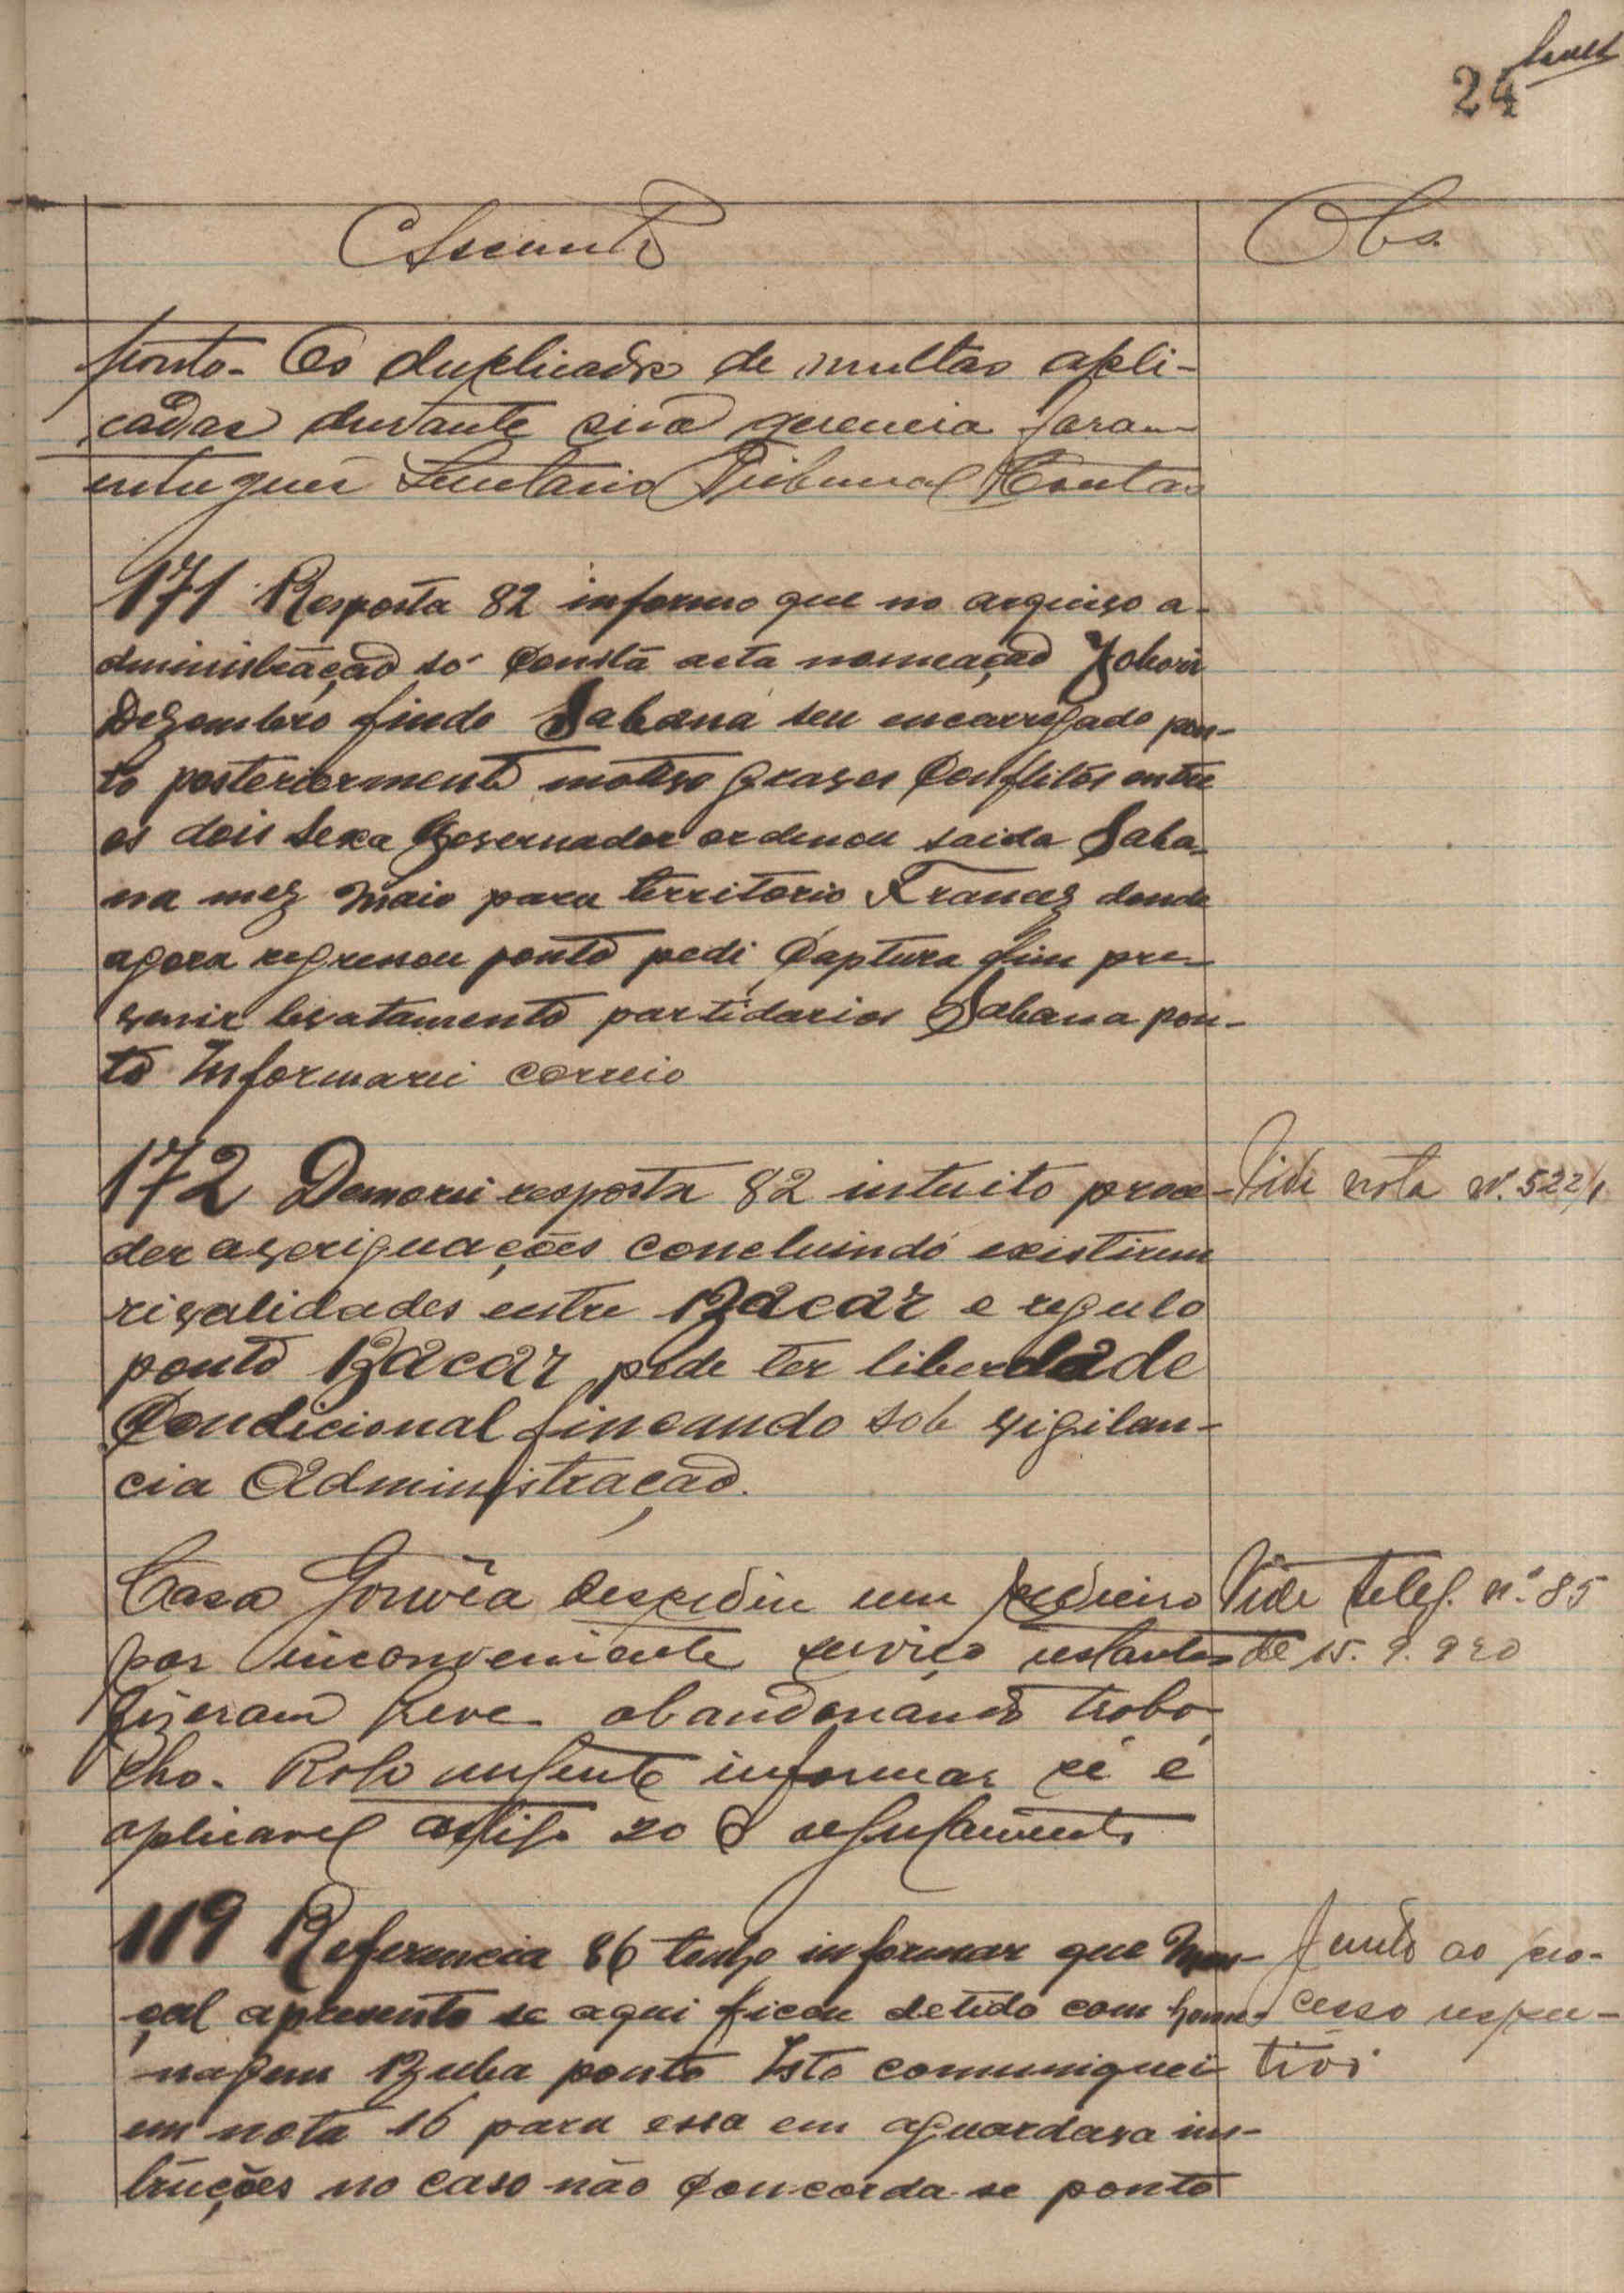 24
Assunto
Obs
ponto. Os duplicados de multas apli-
cadas durante sua gerencia foram
entregues Secretario Tribunal Contas
171 Resposta 82 informo que no arquivo a-
dministração só consta acta nomeação
Dezembro findo Sabana seu encarregado pon-
to posteriormente motivo graves conflitos entre
os dois Sexa Governador ordenou saida Saba-
na mez Maio para territorio Francez donde
agora regressou ponto pedi captura fim pre-
venir levatamento partidarios Sabana pon-
to Informarei correio
172 Demorei resposta 82 intuito proce-
der averiguações concluindo existirem
rivalidades entre Bacar e regulo
ponto Bacar pode ter liberdade
condicional fincando sob vigilan-
cia Administração.
Vide nota Nº. 522/1
Casa Gouvêa despediu um pedreiro
por inconveniente serviço restantes
fizeram greve abandonando traba-
lho. Rogo urgente informar se é
aplicavel artigo 20 regulamento
Vide teleg. nº. 85
de 15.9.920
119 Referencia 86 tenho informar que Man-
çal apresento se aqui ficou detido com home-
nagem Buba ponto Isto comuniquei
em nota 16 para essa em aguardava ins-
truções no caso não concorda-se ponto
Junto ao pro-
cesso respec-
tivo